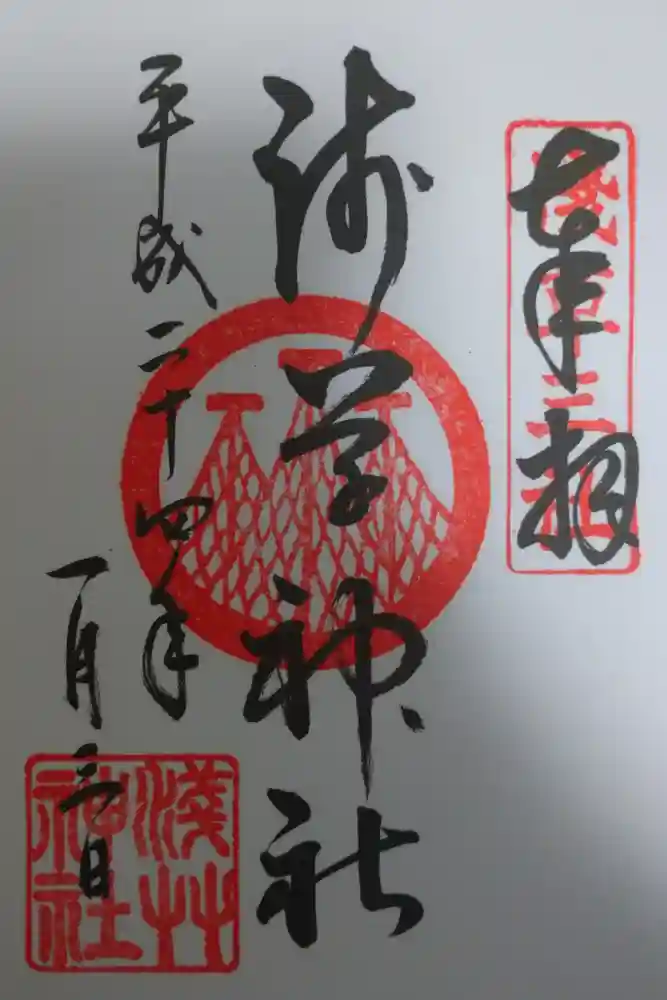 奉拝
淺草三社
浅草神社
平成二十四年
一月三日
淺艸
神社